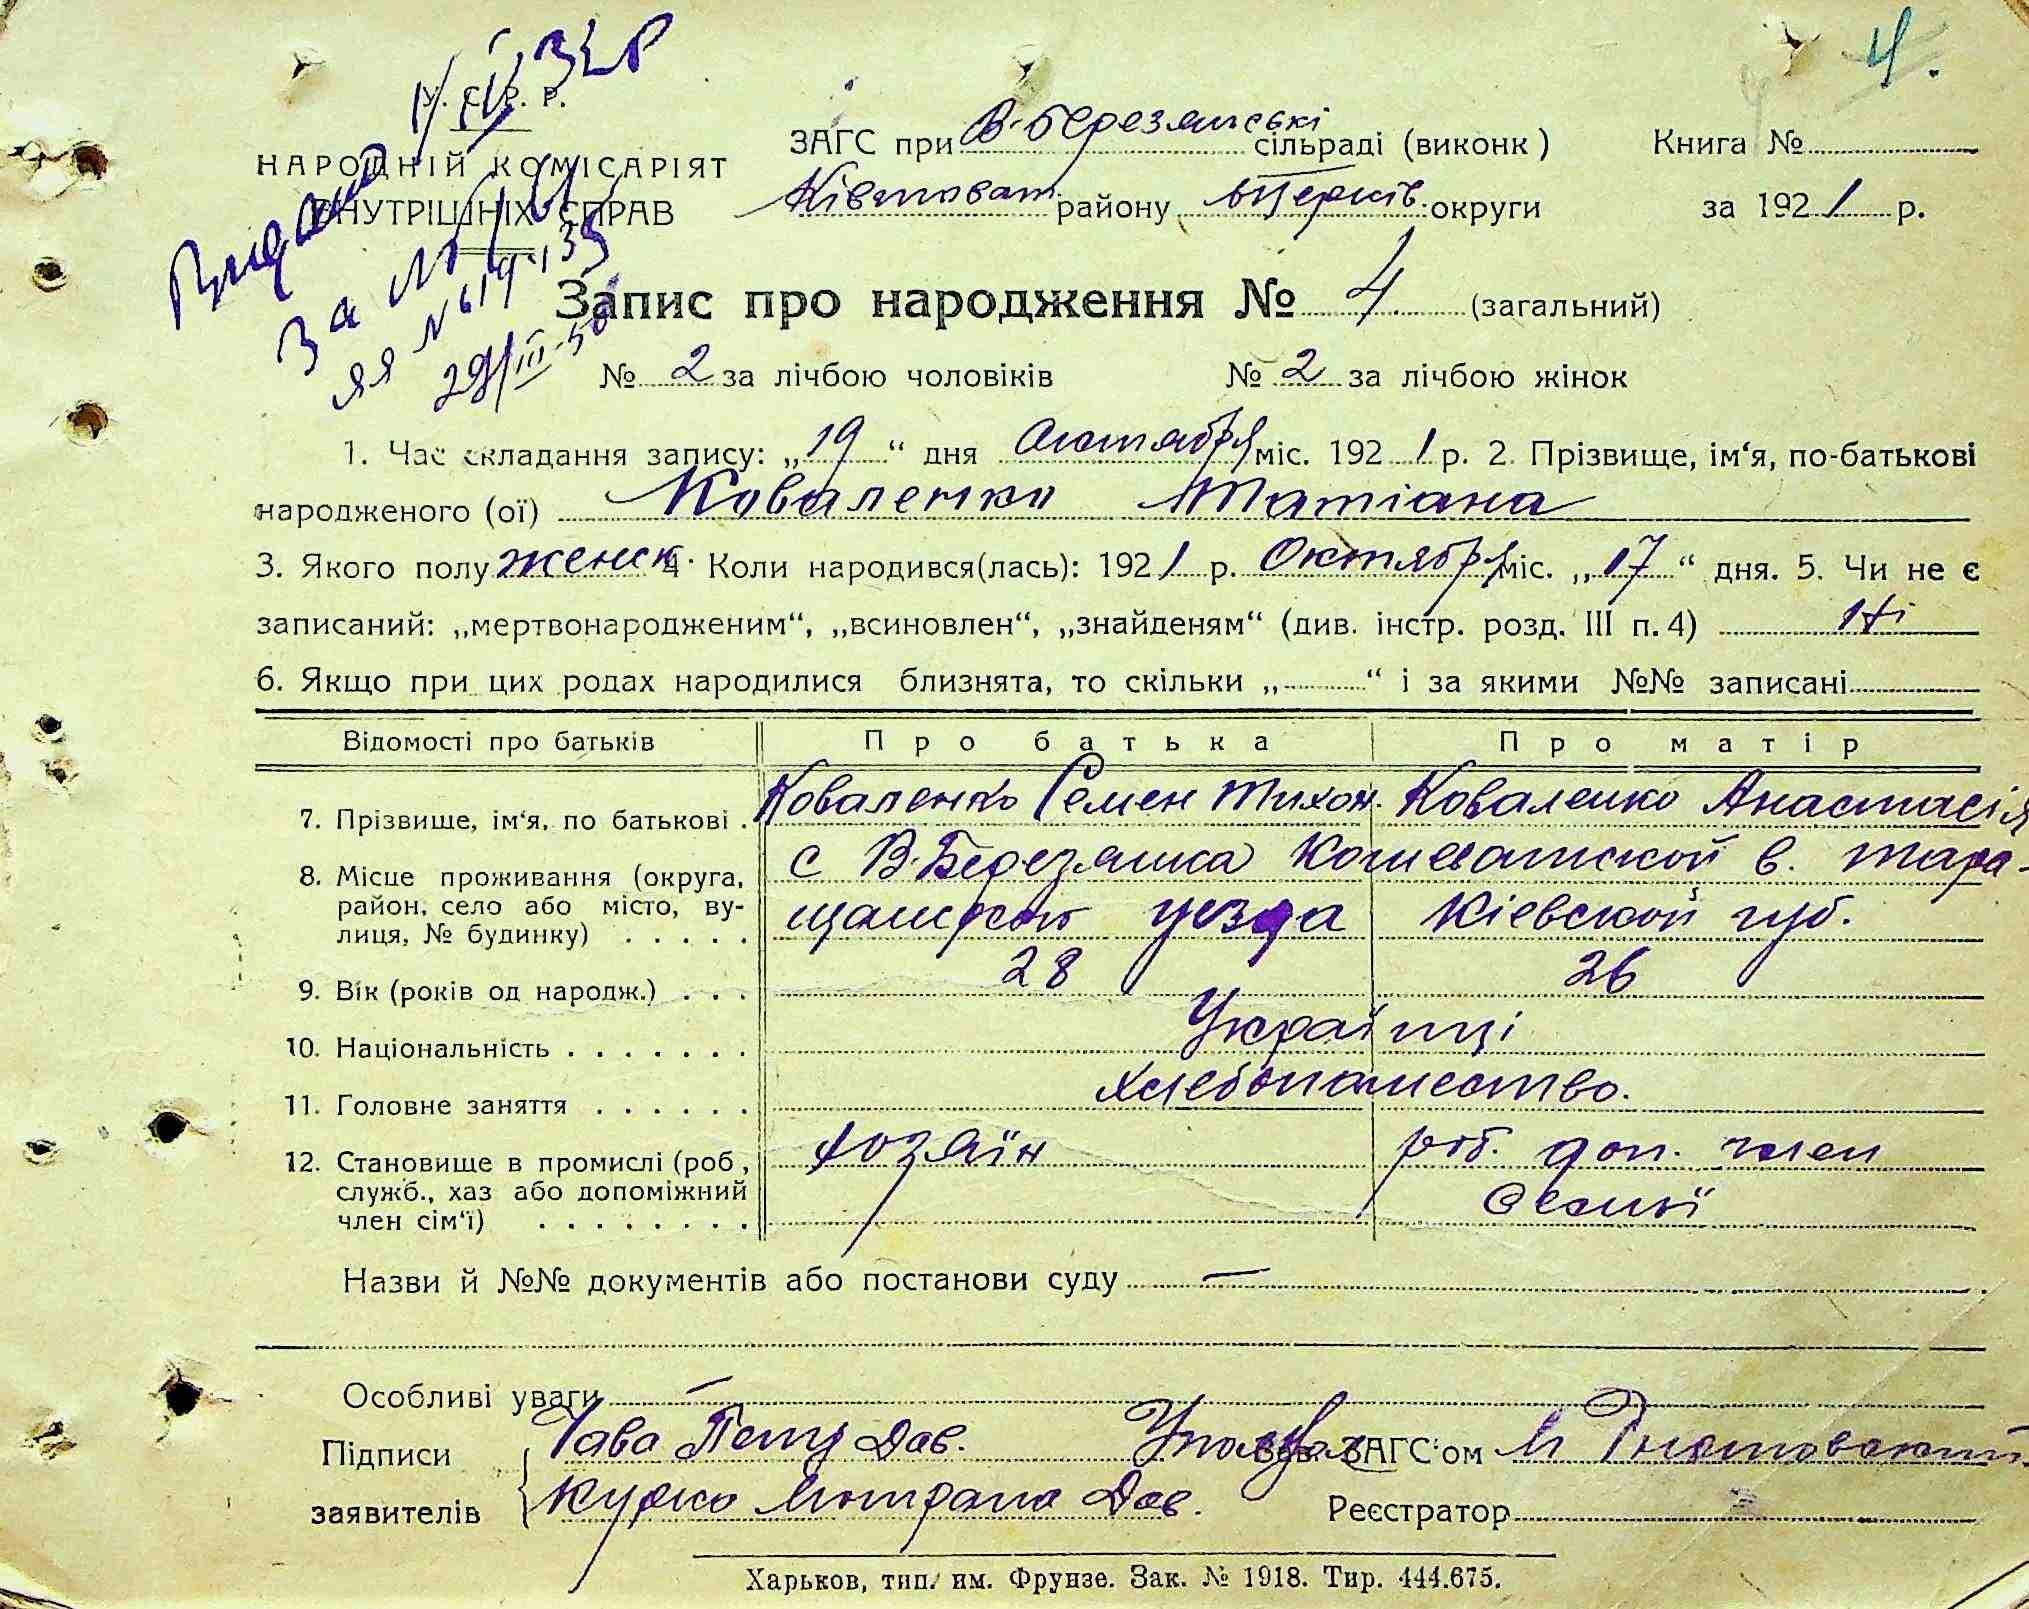 4.
У. С. Р. Р.
НАРОДНІЙ КОМІСАРІЯТ
ВНУТРІШНІХ СПРАВ
ЗАГС при В-Березянські сільраді (виконк)
району округи
Книга №
за 1921 р.
Запис про народження № 4 (загальний)
№ 2 за лічбою чоловіків № 2 за лічбою жінок
1. Час складання запису: „19“ дня Октября міс. 1921 р. 2. Прізвище, ім‘я, по-батькові
народженого (ої) Коваленко Татіана
3. Якого полу женск. 4. Коли народився(лась): 1921 р. Октября міс. „17“ дня. 5. Чи не є
записаний: „мертвонародженим“, „всиновлен“, „знайденям“ (див. інстр. розд. III п. 4) Ні
6. Якщо при цих родах народилися близнята, то скільки „ “ і за якими №№ записані
Відомості про батьків Про батька Про матір
7. Прізвище, ім‘я, по батькові Коваленко Семен Тихон. Коваленко Анастасія
8. Місце проживання (округа, район, село або місто, вулиця, № будинку) с В. Березянка в. Тара-
уезда Кіевской губ.
9. Вік (років од народж.) 28 26
10. Національність Українці
11. Головне заняття хлебопашество.
12. Становище в промислі (роб, служб., хаз або допоміжний член сім‘ї) хозяїн роб. доп. член
семьї
Назви й №№ документів або постанови суду —
Особливі уваги —
Підписи
заявителів
Зав. ЗАГС‘ом
Дав.
Реєстратор
Харьков, тип. им. Фрунзе. Зак. № 1918. Тир. 444.675.